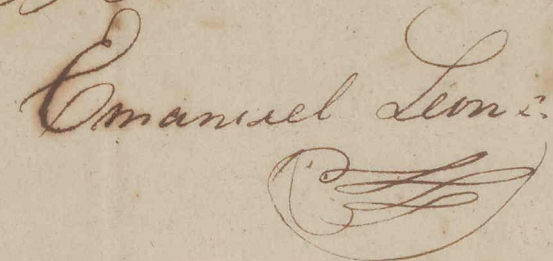 Emanuel Leon